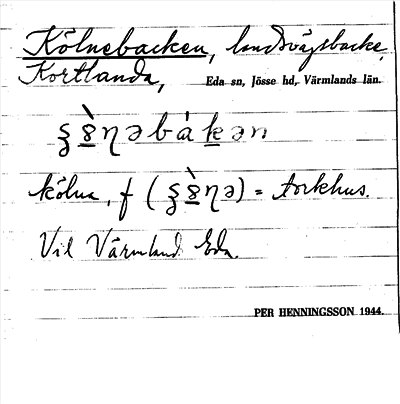 Kölnebacken, landsvägsbacke,
Kortlanda, Eda sn, Jösse hd, Värmlands län.
kölna, f ( ) = torkhus.
Vil Värmland Eda.
PER HENNINGSSON 1944.